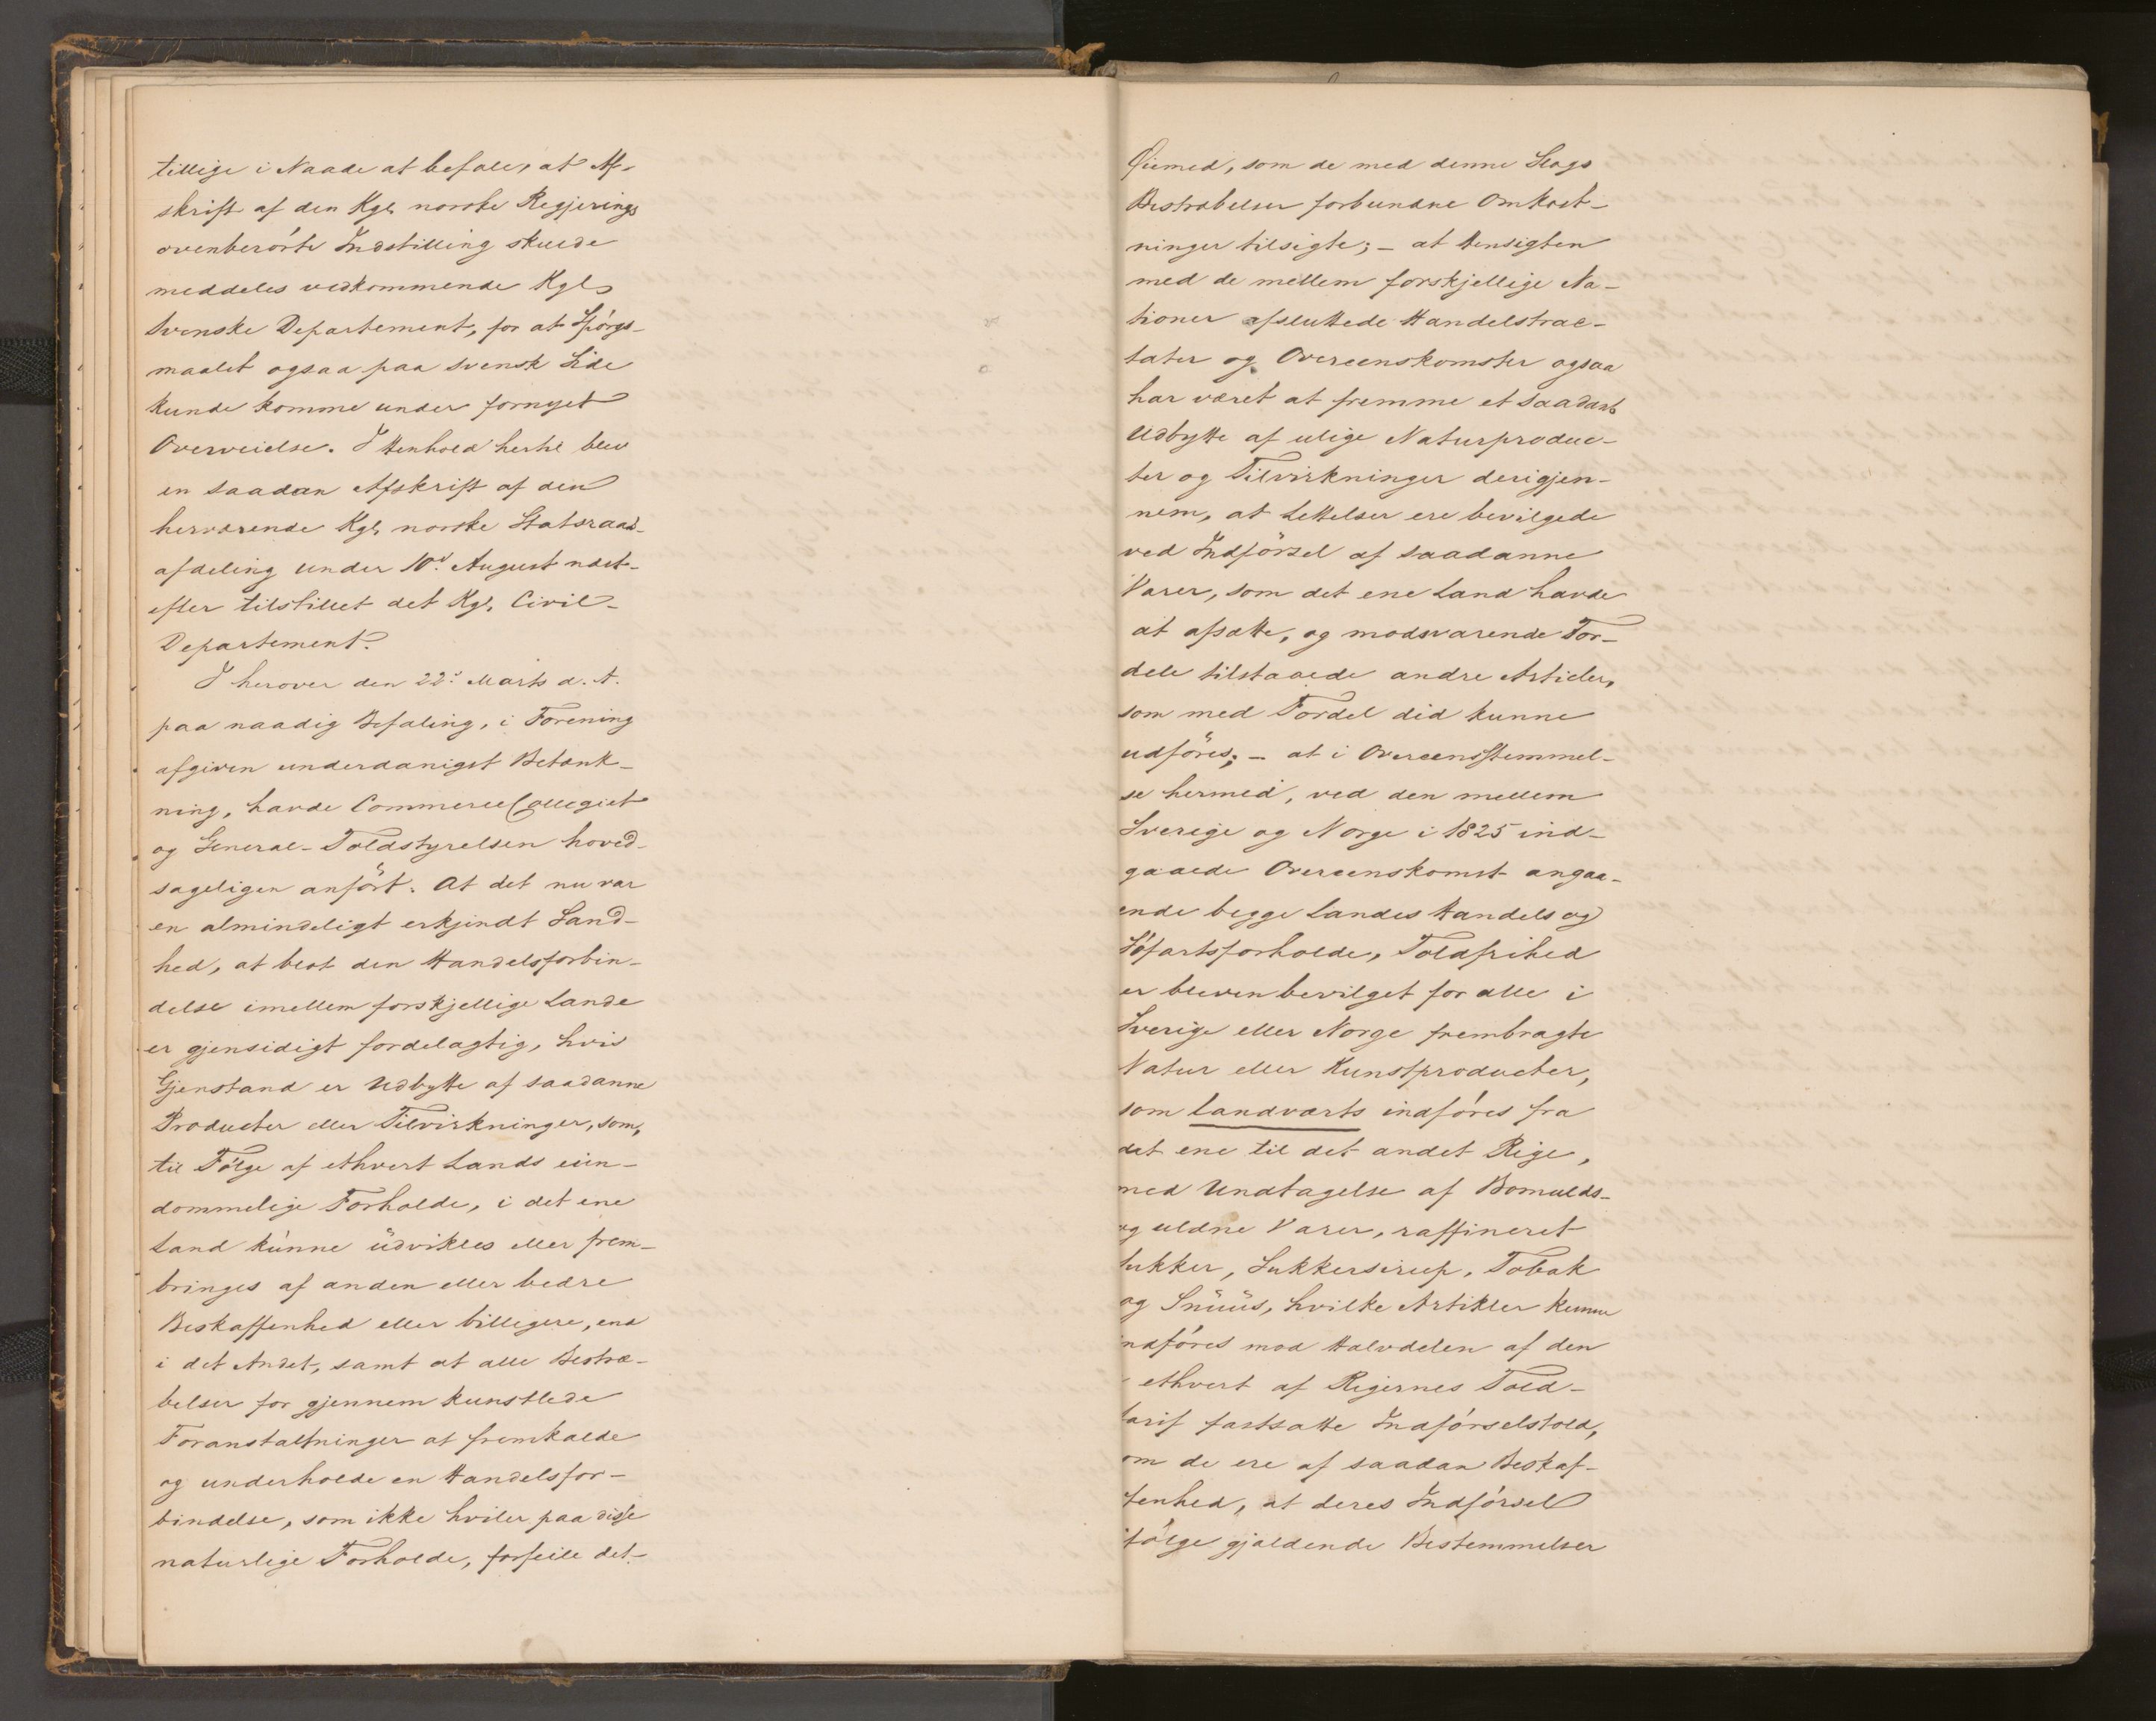 tillige i Naade at befale, at Af-
skrift af den Kgl. norske Regjerings
ovenberörte Indstilling skulde
meddeles vedkommende Kgl.
Svenske Departement, for at Spörgs-
maalet ogsaa paa svensk Side
kunde komme under fornyet
Overveielse. I Henhold hertil blev
en saadan Afskrift af den
herværende Kgl. norske Statsraad-
afdeling under 10d. August næst-
efter tilstillet det Kgl. Civil-
Departement.
I herover den 22d. Marts d. A.
paa naadig Befaling, i Forening
afgiven underdanigst Betænk-
ning, havde CommerceCollegiet
og General-Toldstyrelsen hoved-
sageligen anfört: At det nu var
en almindeligt erkjendt Sand-
hed, at blot den Handelsforbin-
delse imellem forskjellige Lande
er gjensidigt fordelagtig, hvis
Gjenstand er Udbytte af saadanne
Producter eller Tilvirkninger, som,
til Fölge af ethvert Lands eien-
dommelige Forholde, i det ene
Land kunne udvikles eller frem-
bringes af anden eller bedre
Beskaffenhed eller billigere, end
i det Andet, samt at alle Bestræ-
belser for gjennem kunstlede
Foranstaltninger at fremkalde
og underholde en Handelsfor-
bindelse, som ikke hviler paa disse
naturlige Forholde, forfeile det
Øiemed, som de med denne Slags
Bestræbelser forbundne Omkost-
ninger tilsigte; - at Hensigten
med de mellem forskjellige Na-
tioner afsluttede Handelstrac-
tater og Overeenskomster ogsaa
har været at fremme et saadant
Udbytte af ulige Naturproduc-
ter og Tilvirkninger derigjen-
nem, at Lettelser ere bevilgede
ved Indförsel af saadanne
Varer, som det ene Land havde
at afsætte, og modsvarende For-
dele tilstaaede andre Articler,
som med Fordel did kunne
udföres; - at i Overeensstemmel-
se hermed, ved den mellem
Sverige og Norge i 1825 ind-
gaaede Overeenskomst angaa-
ende begge Landes Handels og
Söfartsforholde, Toldfrihed
er bleven bevilget for alle i
Sverige eller Norge frembragte
Natur eller Kunstproducter,
som landværts indföres fra
det ene til det andet Rige,
med Undtagelse af Bomulds-
og uldne Varer, raffineret
Sukker, Sukkersirup, Tobak
og Snuus, hvilke Artikler kunne
indföres mod Halvdelen af den
i ethvert af Rigernes Told-
tarif fastsatte Indförselstold,
om de ere af saadan Beskaf-
fenhed, at deres Indförsel
ifölge gjældende Bestemmelser